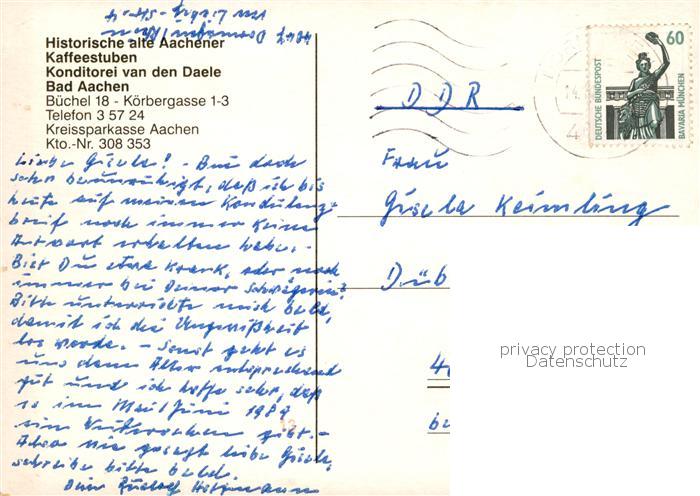 Historische alte Aachener
Kaffeestuben
Konditorei van den Daele
Bad Aachen
Büchel 18 - Körbergasse 1-3
Telefon 3 57 24
Kreissparkasse Aachen
Kto.-Nr. 308 353
Liebe Gisela! - Bin doch
sehr beunruhigt, daß ich bis
heute auf meinen Kondulenz-
brief noch immer keine
Antwort erhalten habe. -
Bist Du etwa krank, oder noch
immer bei Deiner Schwägerin?
Bitte unterrichte mich bald,
damit ich die Ungewißheit
los werde. - Sonst geht es
uns dem Alter entsprechend
gut und ich hoffe sehr, daß
es im Mai/Juni 1989
ein gibt. -
Also nie gesagt liebe Gisela,
schreibe bitte bald
Dein Rudolf
DDR
Frau
Gisela Keimling
Düb
4
be
DEUTSCHE BUNDESPOST
60
BAVARIA MÜNCHEN
privacy protection
Datenschutz